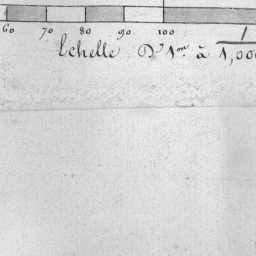 60 70 80 90 100
Echelle D' 1m. à 1/1,00